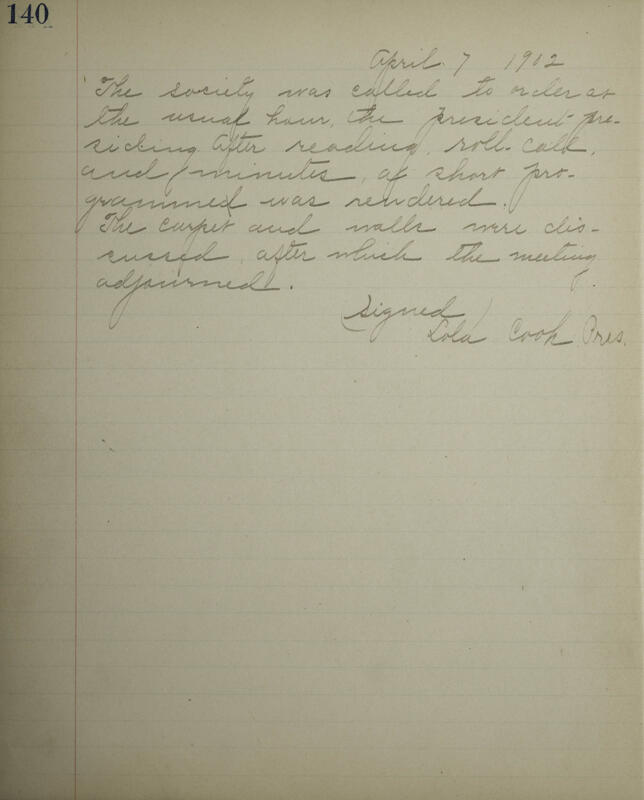 140
April 7 1902
The society was called to order at
the usual hour, the president pre-
siding. After reading, roll-call,
and minutes, a short pro-
gramme was rendered.
The carpet and walls were dis-
cussed, after which the meeting
adjourned.
(Signed)
Lola Cook Pres.